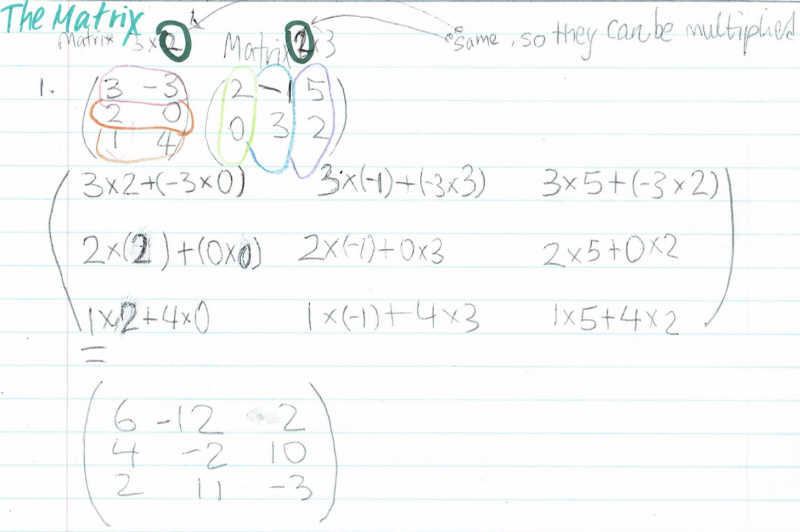 The Matrix
Matrix 3x2 Matrix 2x3 same, so they can be multiplied
1. (3 -3) (2 -1 5)
(2 0) (0 3 2)
(1 4)
(3x2+(-3x0) 3x(-1)+(-3x3) 3x5+(-3x2))
2x(2)+(0x0) 2x(-1)+0x3 2x5+0x2
1x2+4x0 1x(-1)+4x3 1x5+4x2
=
(6 -12 2)
4 -2 10
2 11 -3